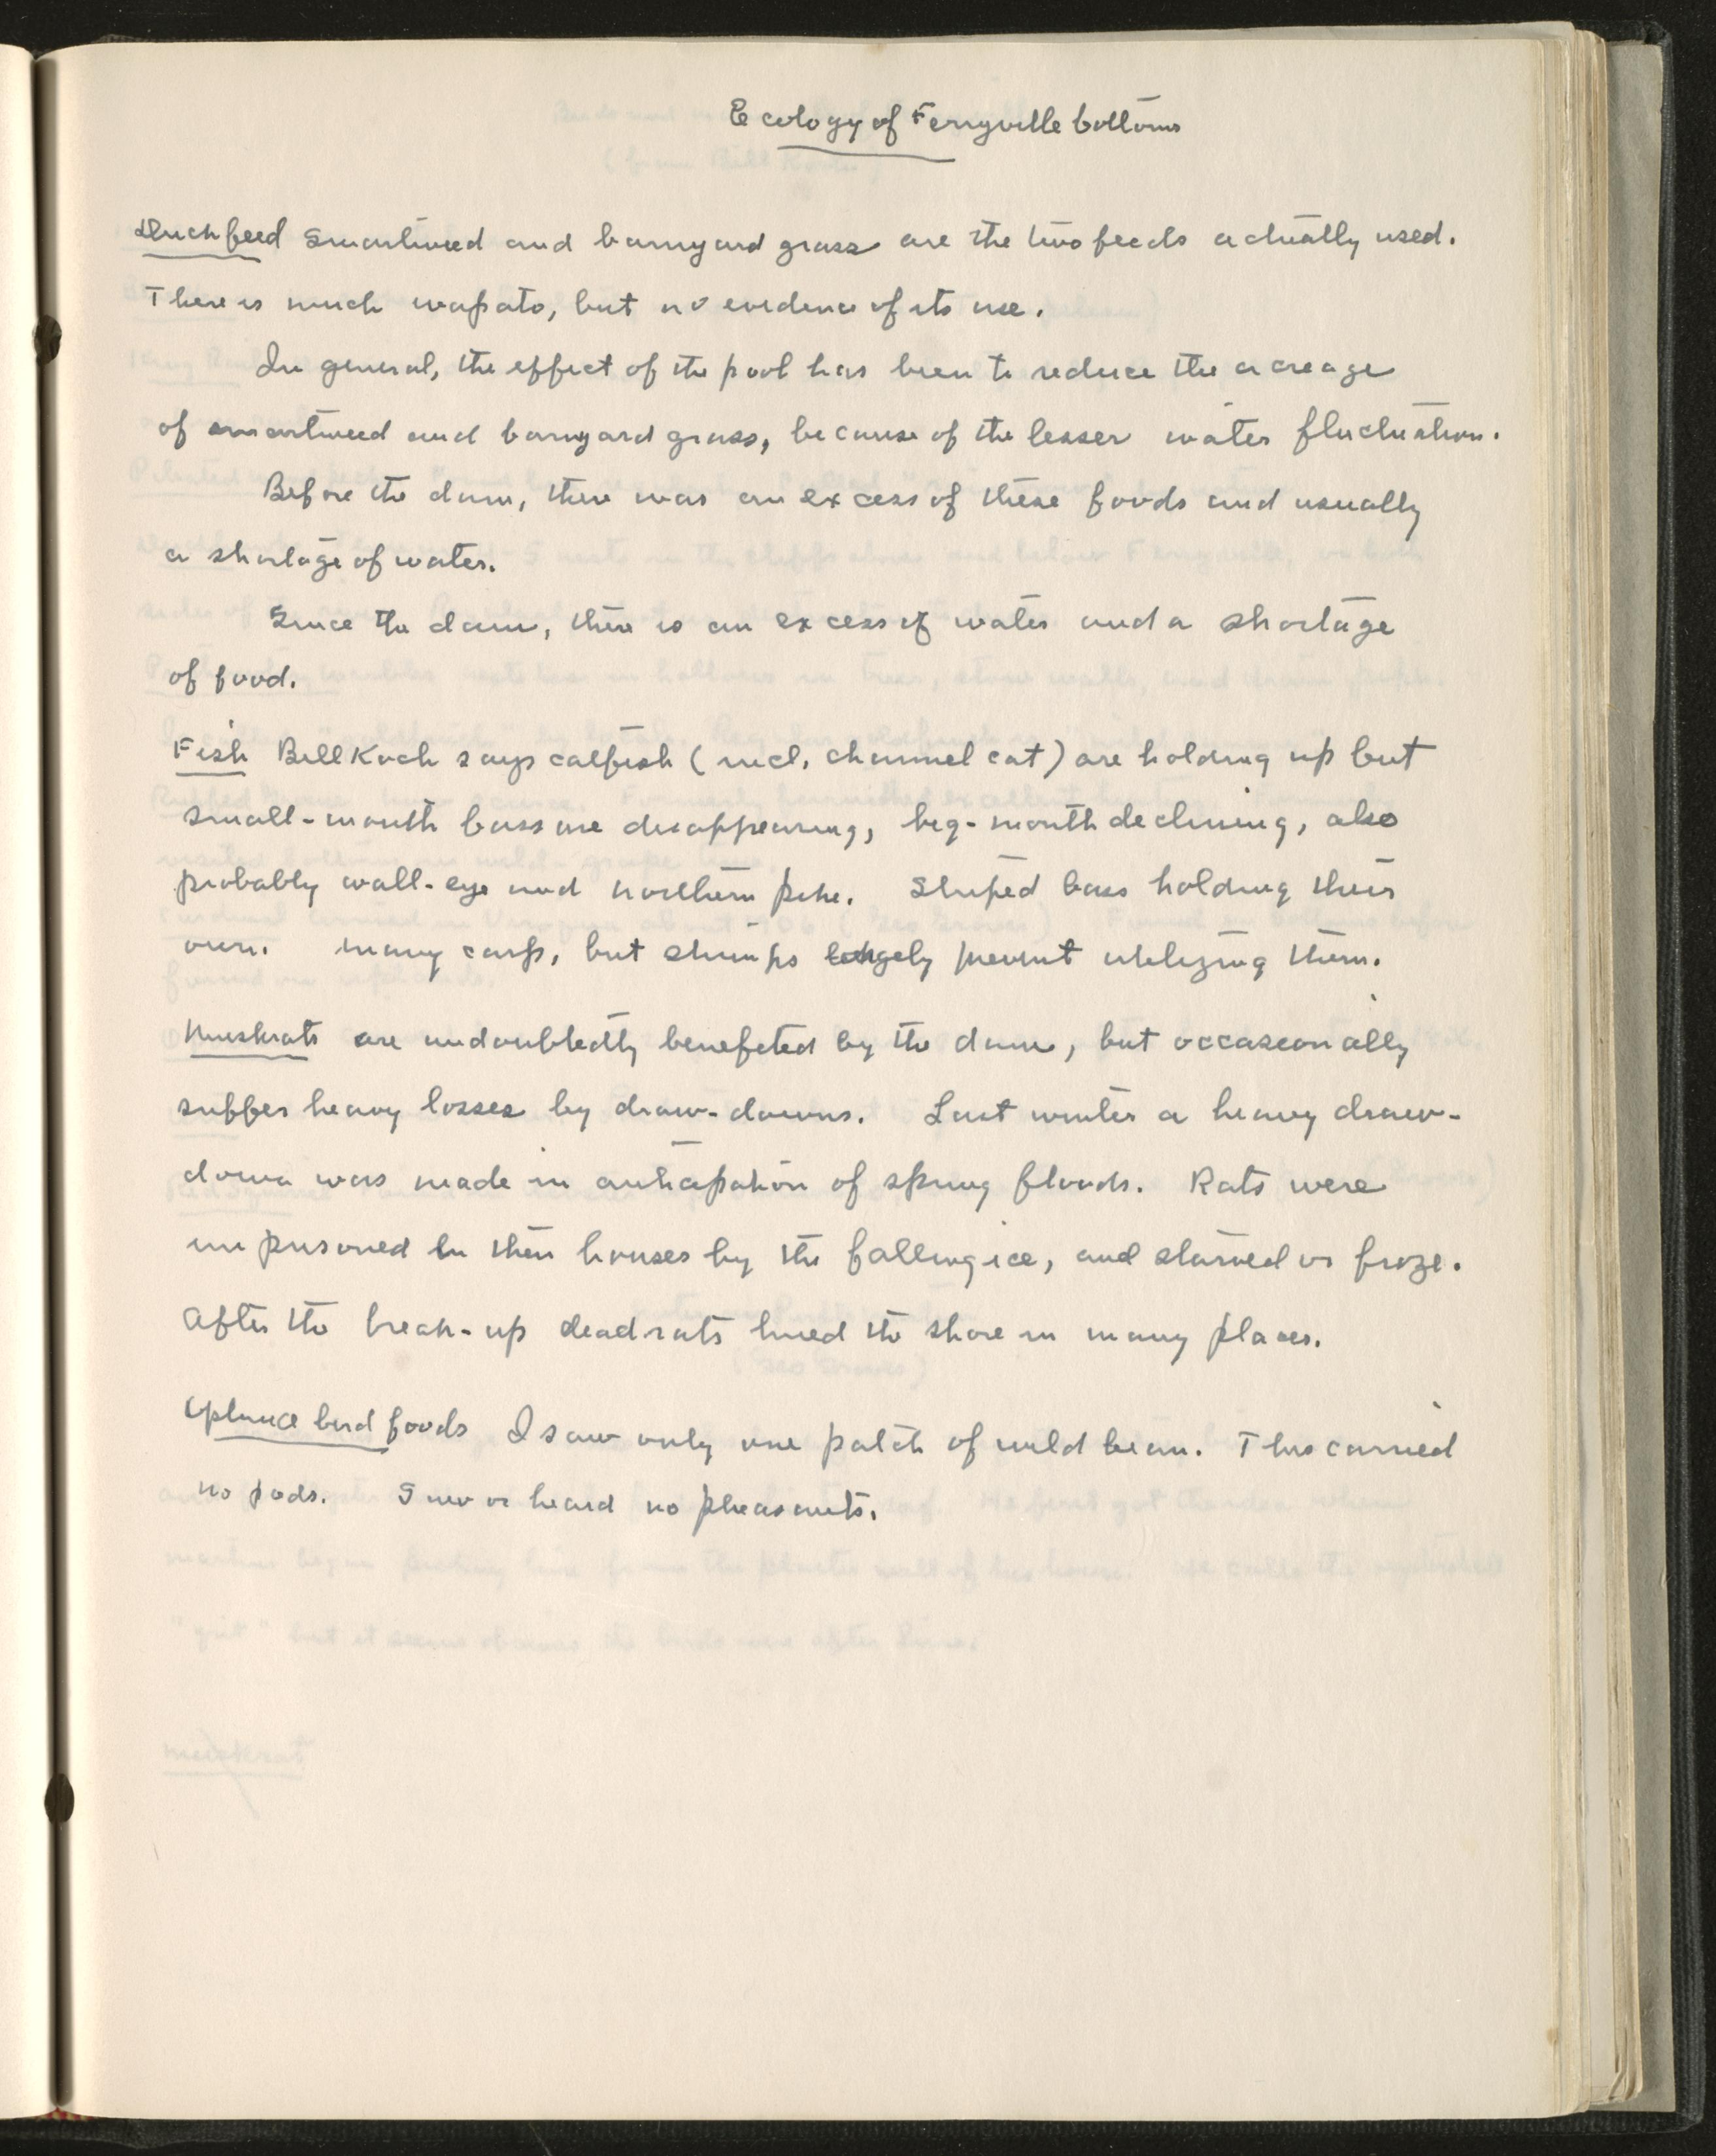 Ecology of Ferryville bottoms
Duck feed Smartweed and barnyard grass are the two feeds actually used.
There is much wapato, but no evidence of its use.
In general, the effect of the pool has been to reduce the acreage
of smartweed and barnyard grass, because of the lesser water fluctuation.
Before the dam, there was an excess of these foods and usually
a shortage of water.
Since the dam, there is an excess of water and a shortage
of food.
Fish Bill Koch says catfish (incl. channel cat) are holding up but
small-mouth bass are disappearing, big-mouth declining, also
probably wall-eye and northern pike. Striped bass holding their
own. Many carp, but stumps largely prevent utilizing them.
Muskrats are undoubtedly benefited by the dam, but occasionally
suffer heavy losses by draw-downs. Last winter a heavy draw-
down was made in anticipation of spring floods. Rats were
imprisoned in their houses by the falling ice, and starved or froze.
After the break-up dead rats lined the shore in many places.
Upland bird foods I saw only one patch of wild bean. This carried
no pods. Saw or heard no pheasants.